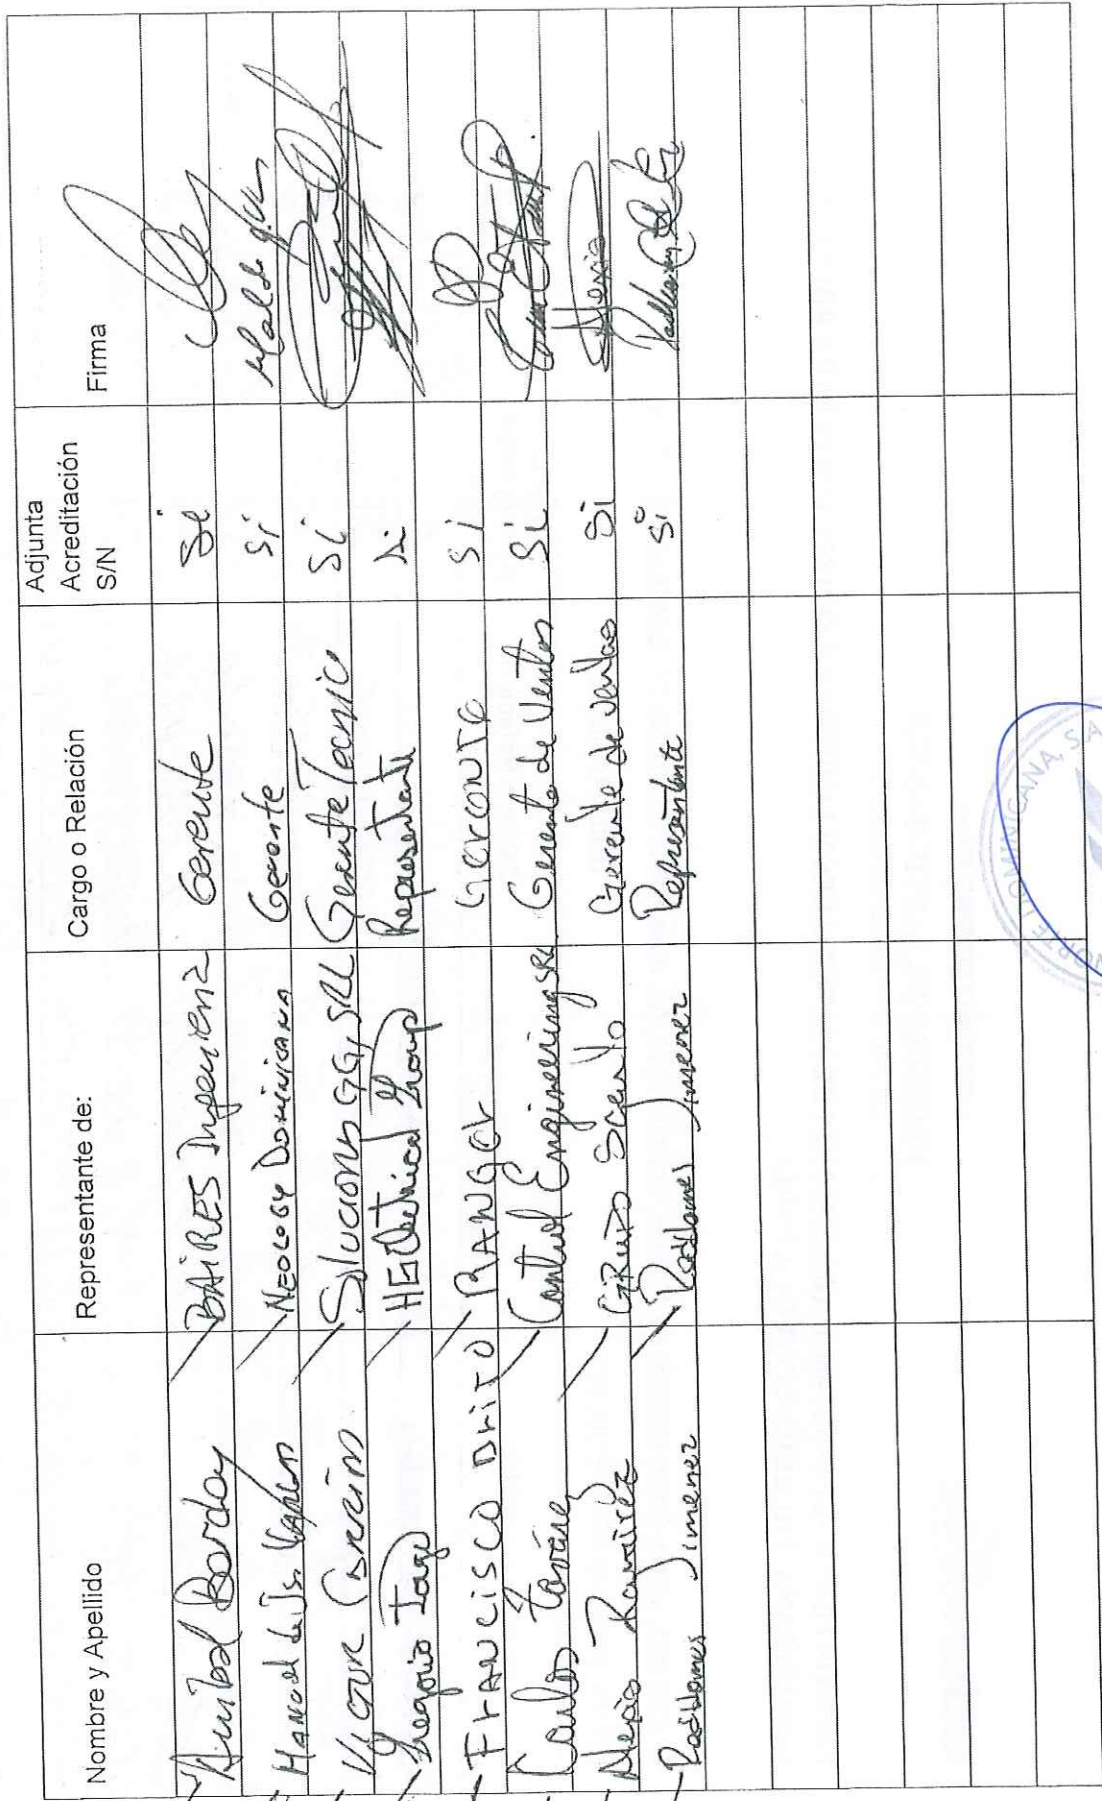 Nombre y Apellido Representante de: Cargo o Relación Adjunta Acreditación S/N Firma
Anibal Barday BAIRES Ingenieria Gerente Si
Manuel de Js. Vargas NEOLOGY DOMINICANA Gerente Si
Victor Soluciones GG, SRL Gerente Tecnico Si
Gregorio HG Electrical Group Representante Si
FRANCISCO BRITO RANGER Gerente Si
Carlos Tavárez Control Engineering SRL Gerente de Ventas Si
Alexis Ramirez GRUPO Gerente de ventas Si Alexis
Radhames Jimenez Radhames Jimenez Representante Si
DOMINICANA, S.A